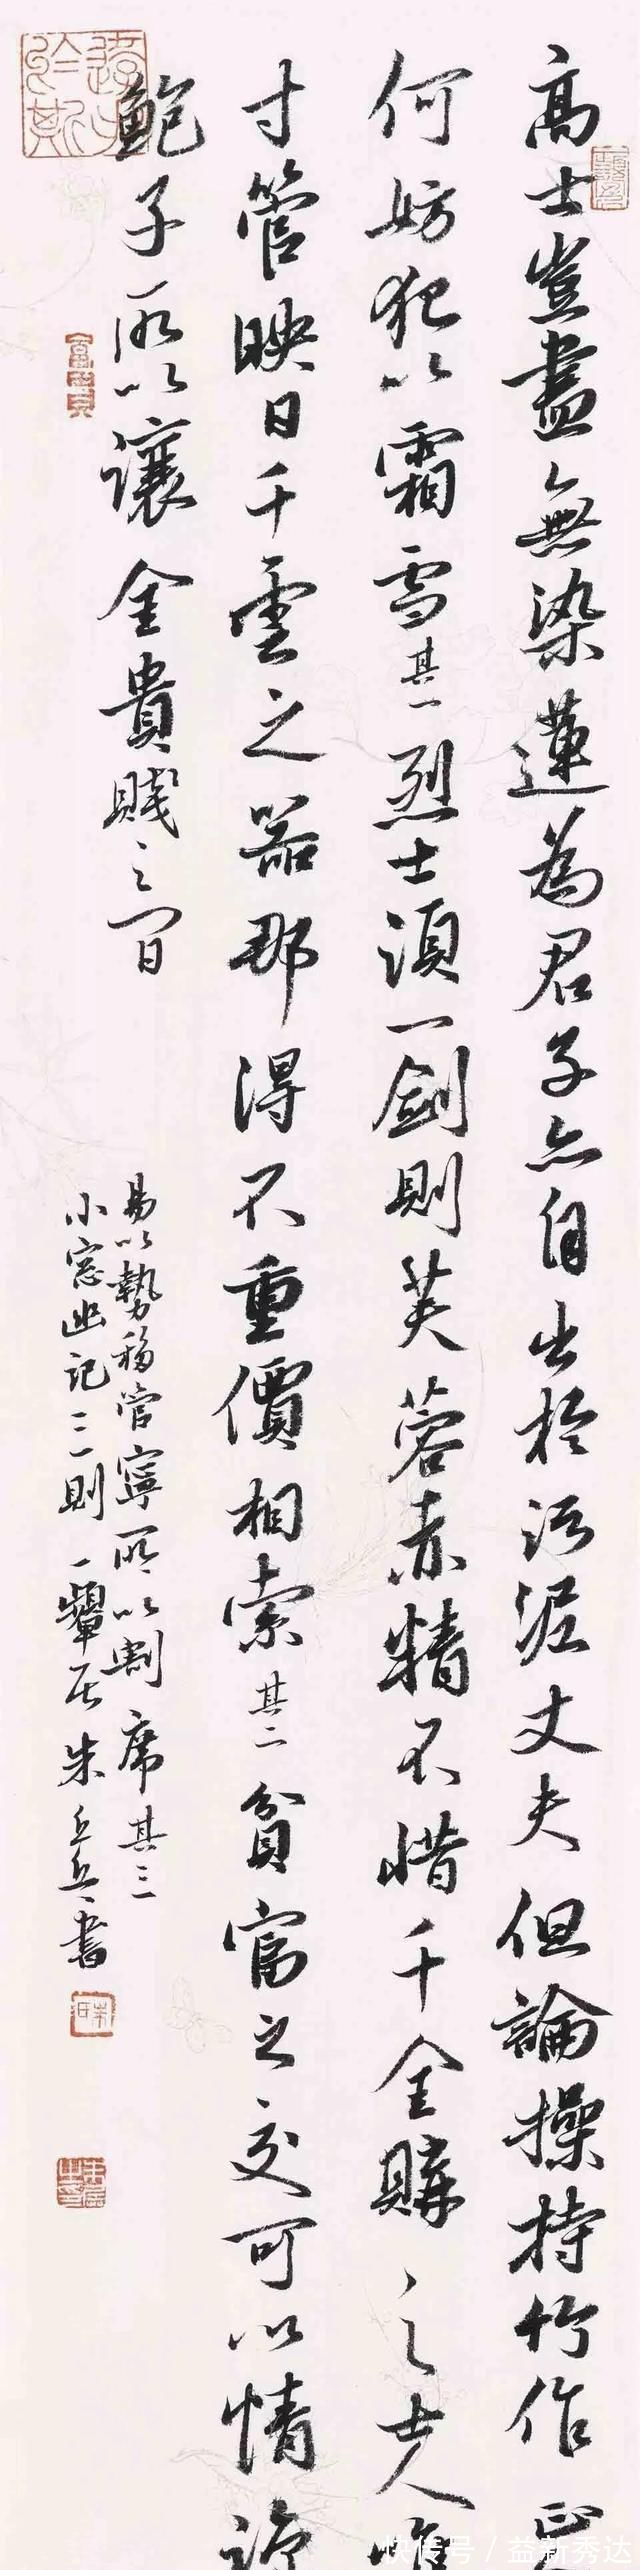 高士豈盡無染蓮為君子亦自出於污泥丈夫但論操持竹作正
何妨犯以霜雪其一烈士須一劍則芙蓉赤精不惜千金購之士人惟
寸管映日干雲之器那得不重價相索其二貧富之交可以情諒
鮑子所以讓金貴賤之間
易以勢移管寧所以割席其三
小窓幽記三則一犟居朱乒乓書
快传号／益新秀达